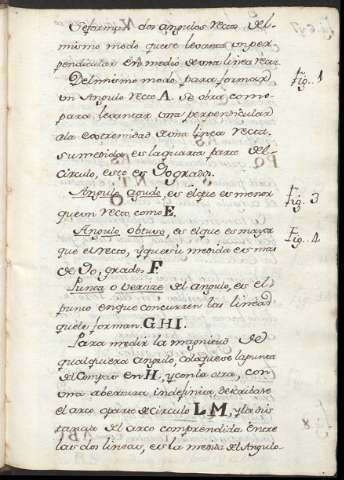 Se forman dos angulos rectos del
mismo modo que se levanta un per-
pendicular en medio de una linea recta.
Del mismo modo para formar
un Angulo recto A. Se obra como
para levantar una perpendicular
a la extremidad de una linea recta.
su medida es la quarta parte del
circulo, esto es 90 grados.
Fig. 1
Angulo agudo, es el que es menor
que un recto, como E.
Fig. 3
Angulo Obtuso, es el que es mayor
que el recto, y que su medida es mas
de 90, grados. F.
Fig. 4
Punta o vertize del angulo, es el
punto en que concurren las lineas
que le forman. G H I.
Para medir la magnitud de
qualquiera angulo, coloquese la punta
del Compas en H, y con la otra, con
una abertura indefinita, describase
el arco o parte de circulo L M, y la dis
tancia del arco comprendida entre
las dos lineas, es la medida del Angulo.